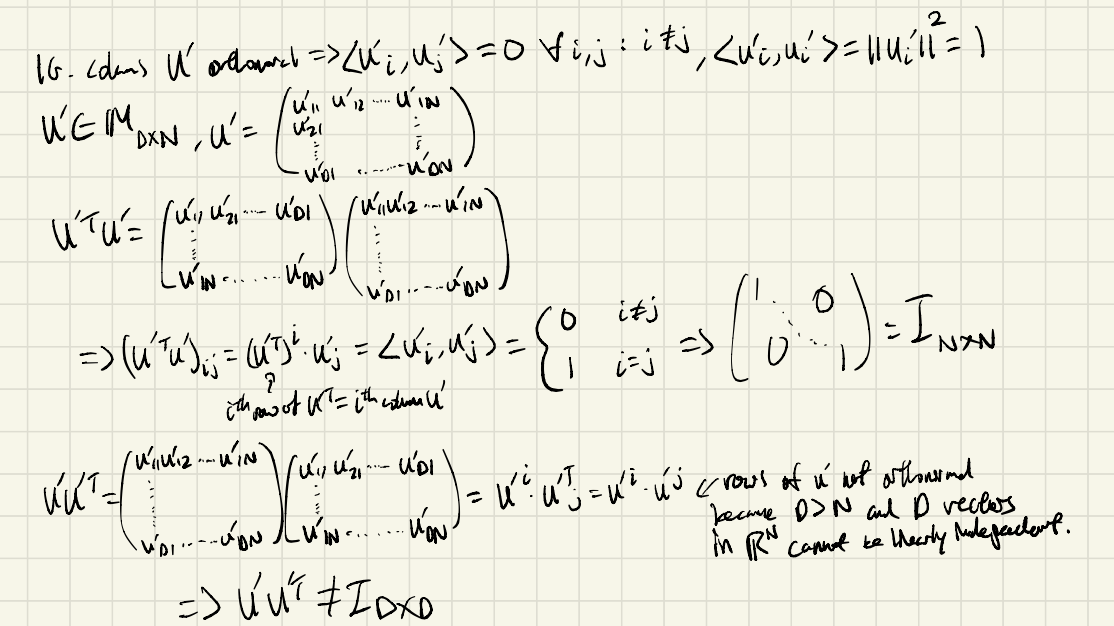 1G. columns U' orthonormal => <u'_i, u'_j> = 0 ∀ i,j : i≠j, <u'_i, u'_i> = ||u_i'||² = 1
U' ∈ M_{D×N}, U' = ( u'_11 u'_12 ---- u'_1N
u'_21
u'_D1 ------ u'_DN )
U'^T U' = ( u'_11 u'_21 --- u'_D1 ) ( u'_11 u'_12 --- u'_1N )
( u'_1N ------ u'_DN ) ( u'_D1 ------ u'_DN )
=> (U'^T U')_ij = (U'^T)^i · u'_j = <u'_i, u'_j> = { 0 i≠j
1 i=j => ( 1 0
0 1 ) = I_{N×N}
i^th row of U'^T = i^th column U'
U'U'^T = ( u'_11 u'_12 --- u'_1N ) ( u'_11 u'_21 --- u'_D1 ) = U'^i · U'^T_j = u'^i · u'^j ← rows of U' not orthonormal
( u'_D1 ------ u'_DN ) ( u'_1N ------ u'_DN ) because D>N and D vectors
in ℝ^N cannot be linearly independent.
=> U'U'^T ≠ I_{D×D}